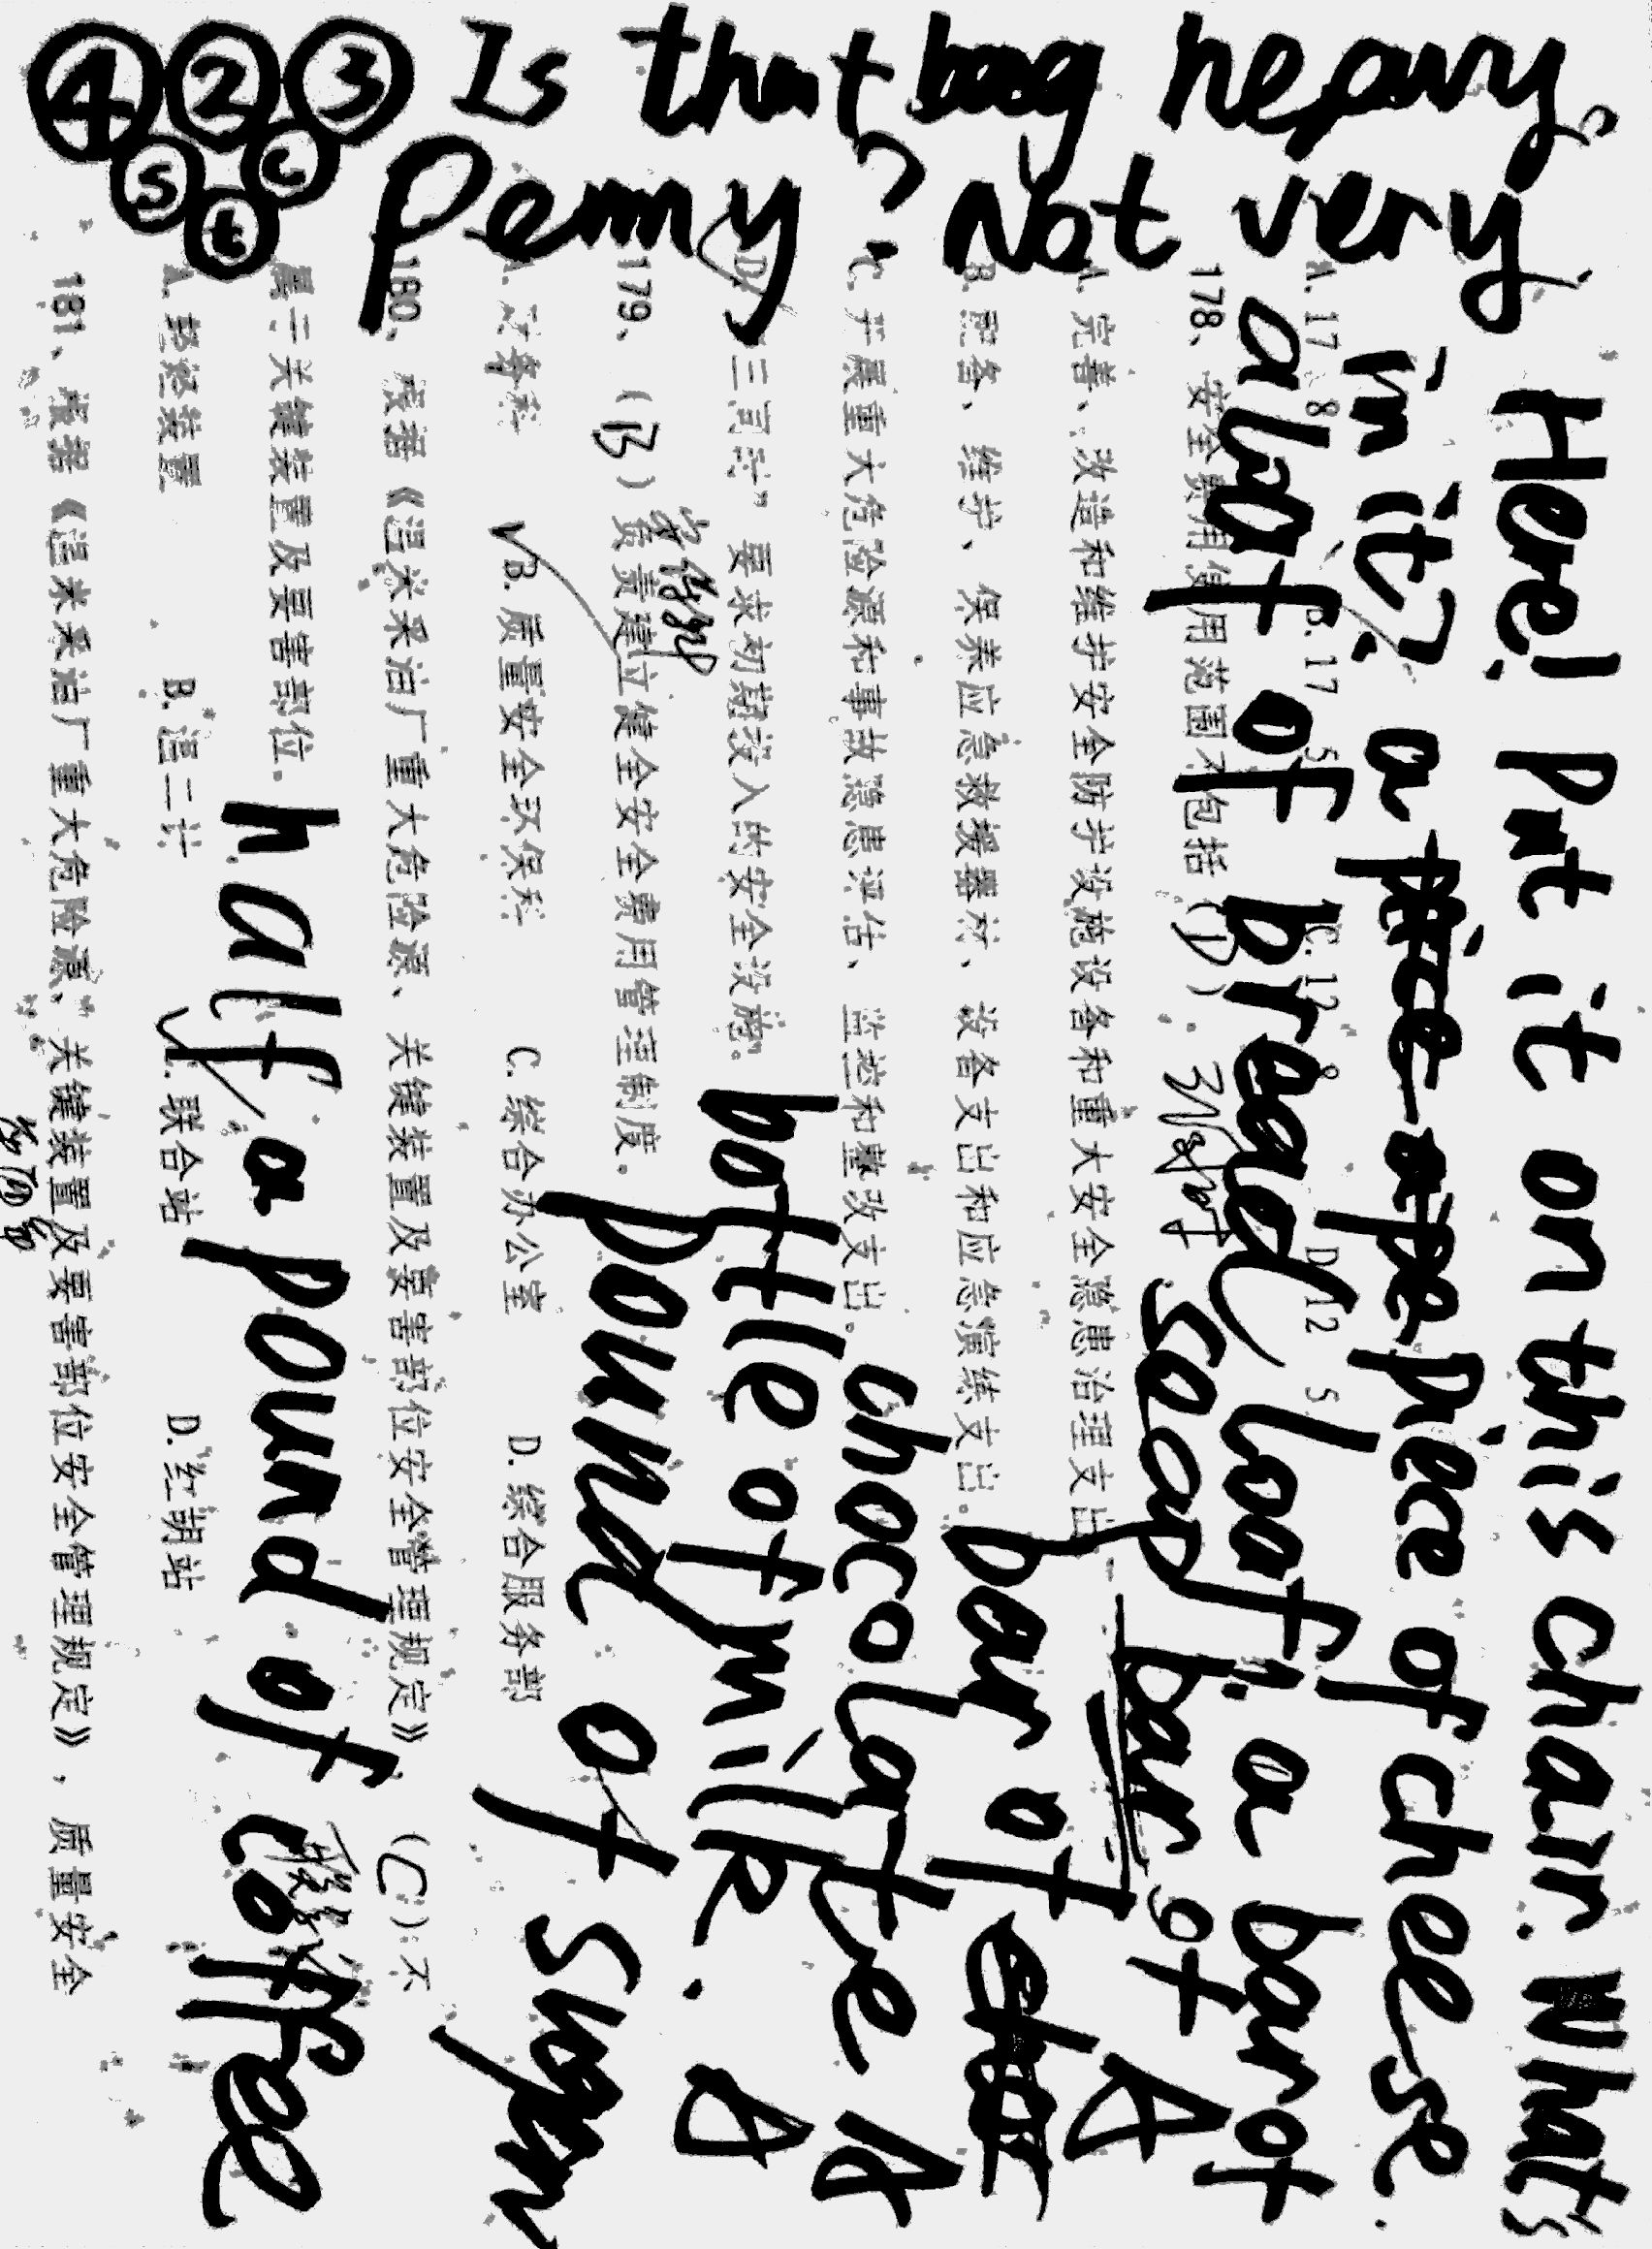 4 2 3 Is that bag heavy,
5 6 Penny? Not very
t
Here! Put it on this chair. What's
in it? a piece of cheese.
a loaf of bread loaf: a bar of
soap bar of A
bar of
chocolate A
bottle of milk. A
pound of sugar
half a pound of coffee
A. 17 8 B. 17 5 C. 12 8 D. 12 5
178、安全费用使用范围不包括(D)。
A. 完善、改造和维护安全防护设施设备和重大安全隐患治理支出
B. 配备、维护、保养应急救援器材、设备支出和应急演练支出。
C. 开展重大危险源和事故隐患评估、监控和整改支出。
D. “三同时”要求初期投入的安全设施。
179、(B)负责建立健全安全费用管理制度。
A. 财务科 B. 质量安全环保科 C. 综合办公室 D. 综合服务部
180、根据《温米采油厂重大危险源、关键装置及要害部位安全管理规定》,(C)不
属于关键装置及要害部位。
A. 轻烃装置 B. 温二计 C. 联合站 D. 红胡站
181、根据《温米采油厂重大危险源、关键装置及要害部位安全管理规定》,质量安全